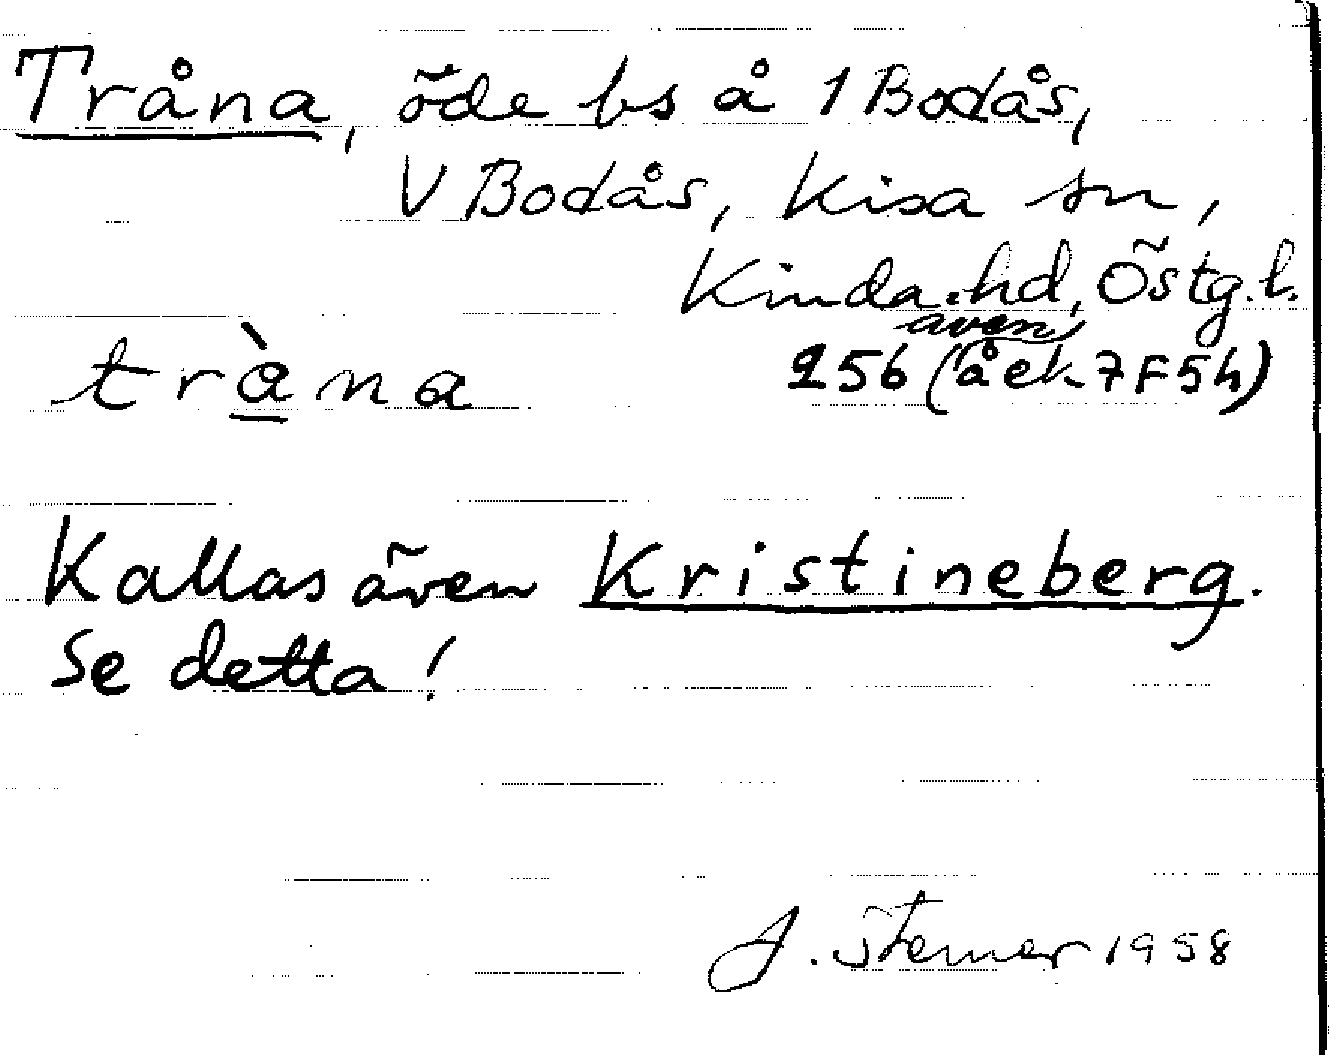 Tråna, öde bs å 1 Bodås,
V Bodås, Kisa sn,
Kinda hd, Östg. l.
även
tràna 256 (å ek 7F5h)
Kallas även Kristineberg.
Se detta!
1958